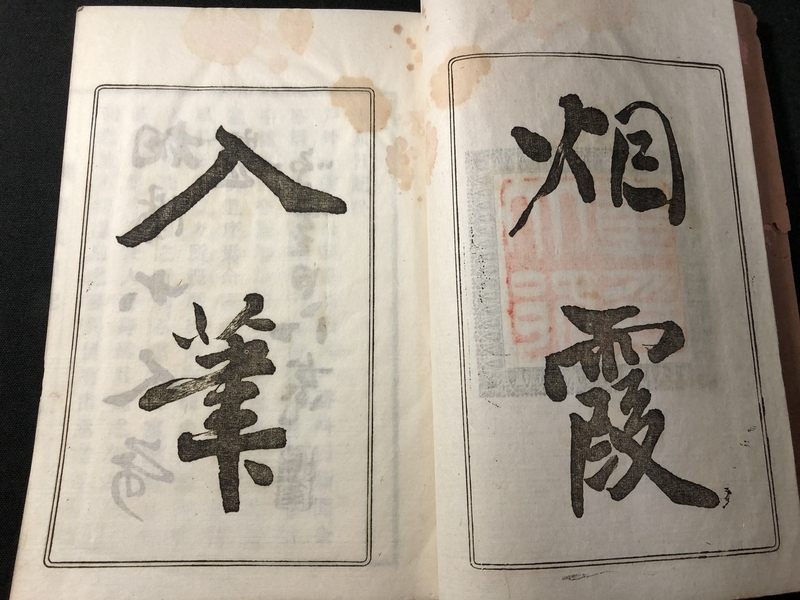 烟霞
入筆